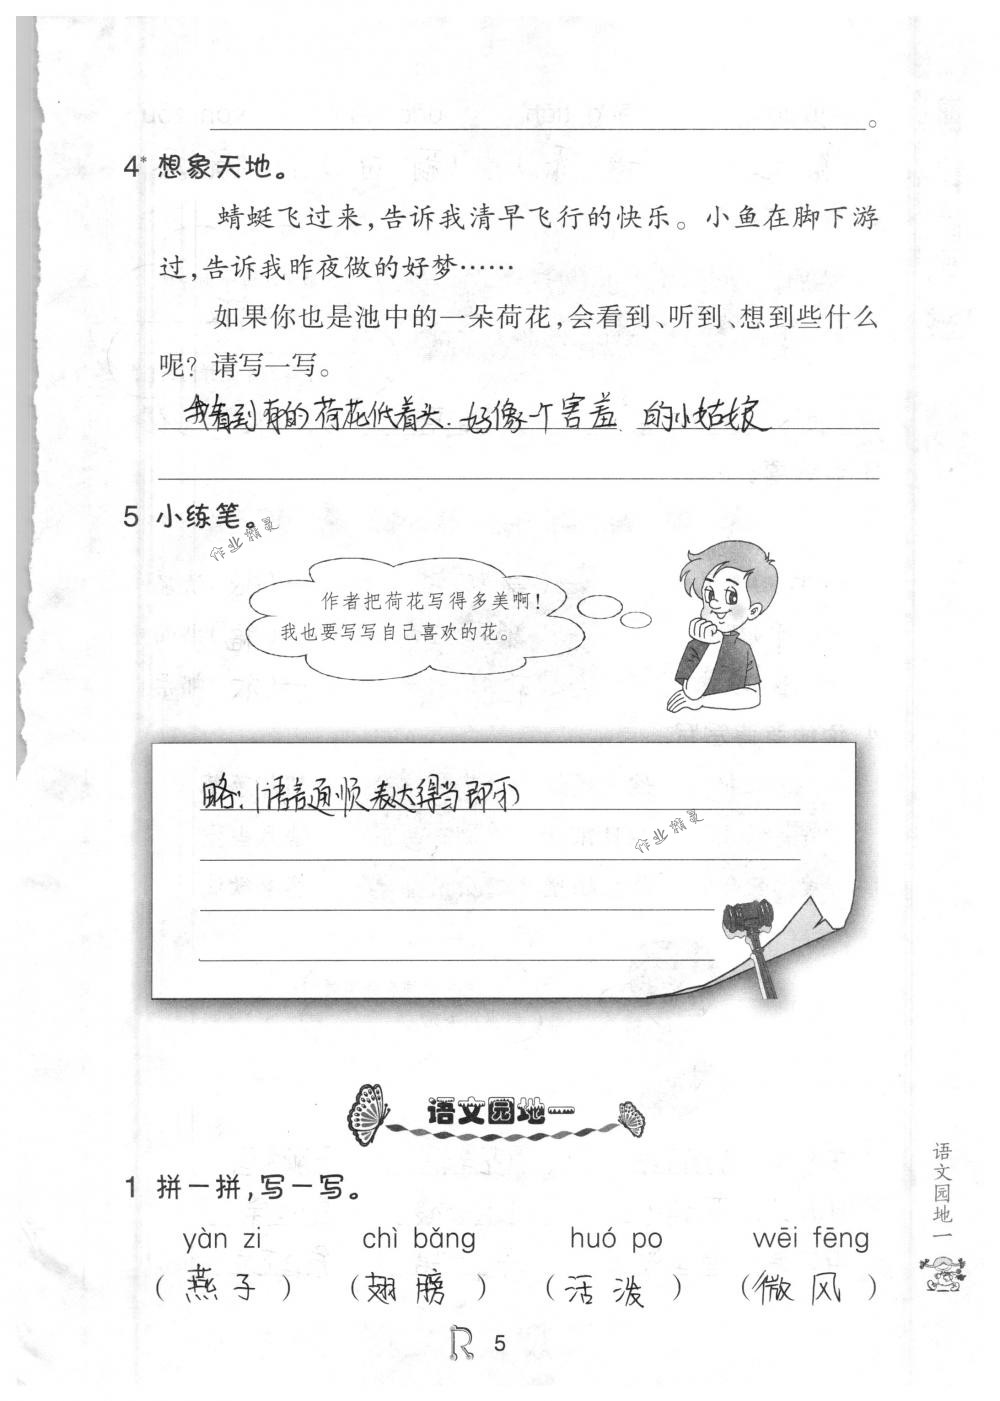 。
4* 想象天地。
蜻蜓飞过来,告诉我清早飞行的快乐。小鱼在脚下游
过,告诉我昨夜做的好梦……
如果你也是池中的一朵荷花,会看到、听到、想到些什么
呢?请写一写。
我看到有的荷花低着头.好像一个害羞 的小姑娘
5 小练笔。
作业精灵
作者把荷花写得多美啊!
我也要写写自己喜欢的花。
略:(语言通顺表达得当即可)
作业精灵
语文园地一
1 拼一拼,写一写。
yàn zi chì bǎng huó po wēi fēng
(燕子) (翅膀) (活泼) (微风)
语文园地一
R 5